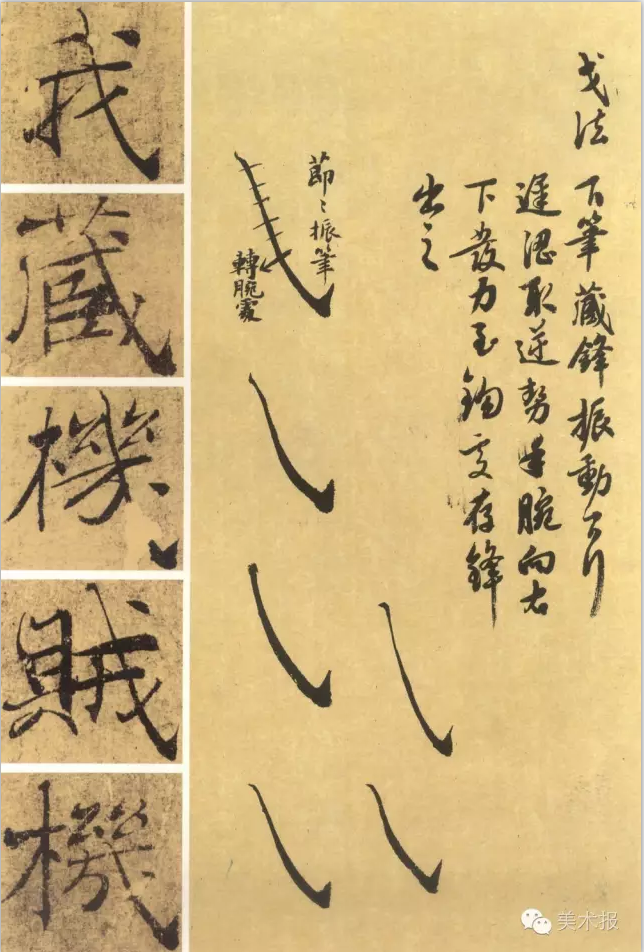 戈法 下筆藏鋒振動而行
遲澀取逆勢手腕向右
下發力至鉤處存鋒
出之
節〻振筆
轉腕處
我
藏
機
賊
機
美术报